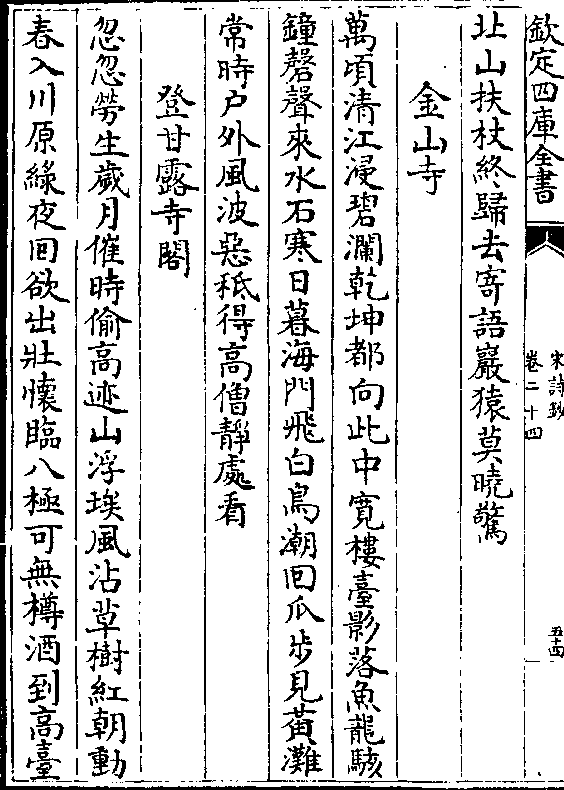 欽定四庫全書
宋詩鈔
卷二十四
五十四
北山扶杖終歸去寄語巖猿莫曉驚
金山寺
萬頃清江浸碧瀾乾坤都向此中寛樓臺影落魚龍駭
鐘磬聲來水石寒日暮海門飛白鳥潮回瓜步見黄灘
常時户外風波惡秪得高僧靜處看
登甘露寺閣
忽忽勞生歲月催時偷高迹山浮埃風沾草樹紅朝動
春入川原綠夜回欲出壯懷臨八極可無樽酒到高臺